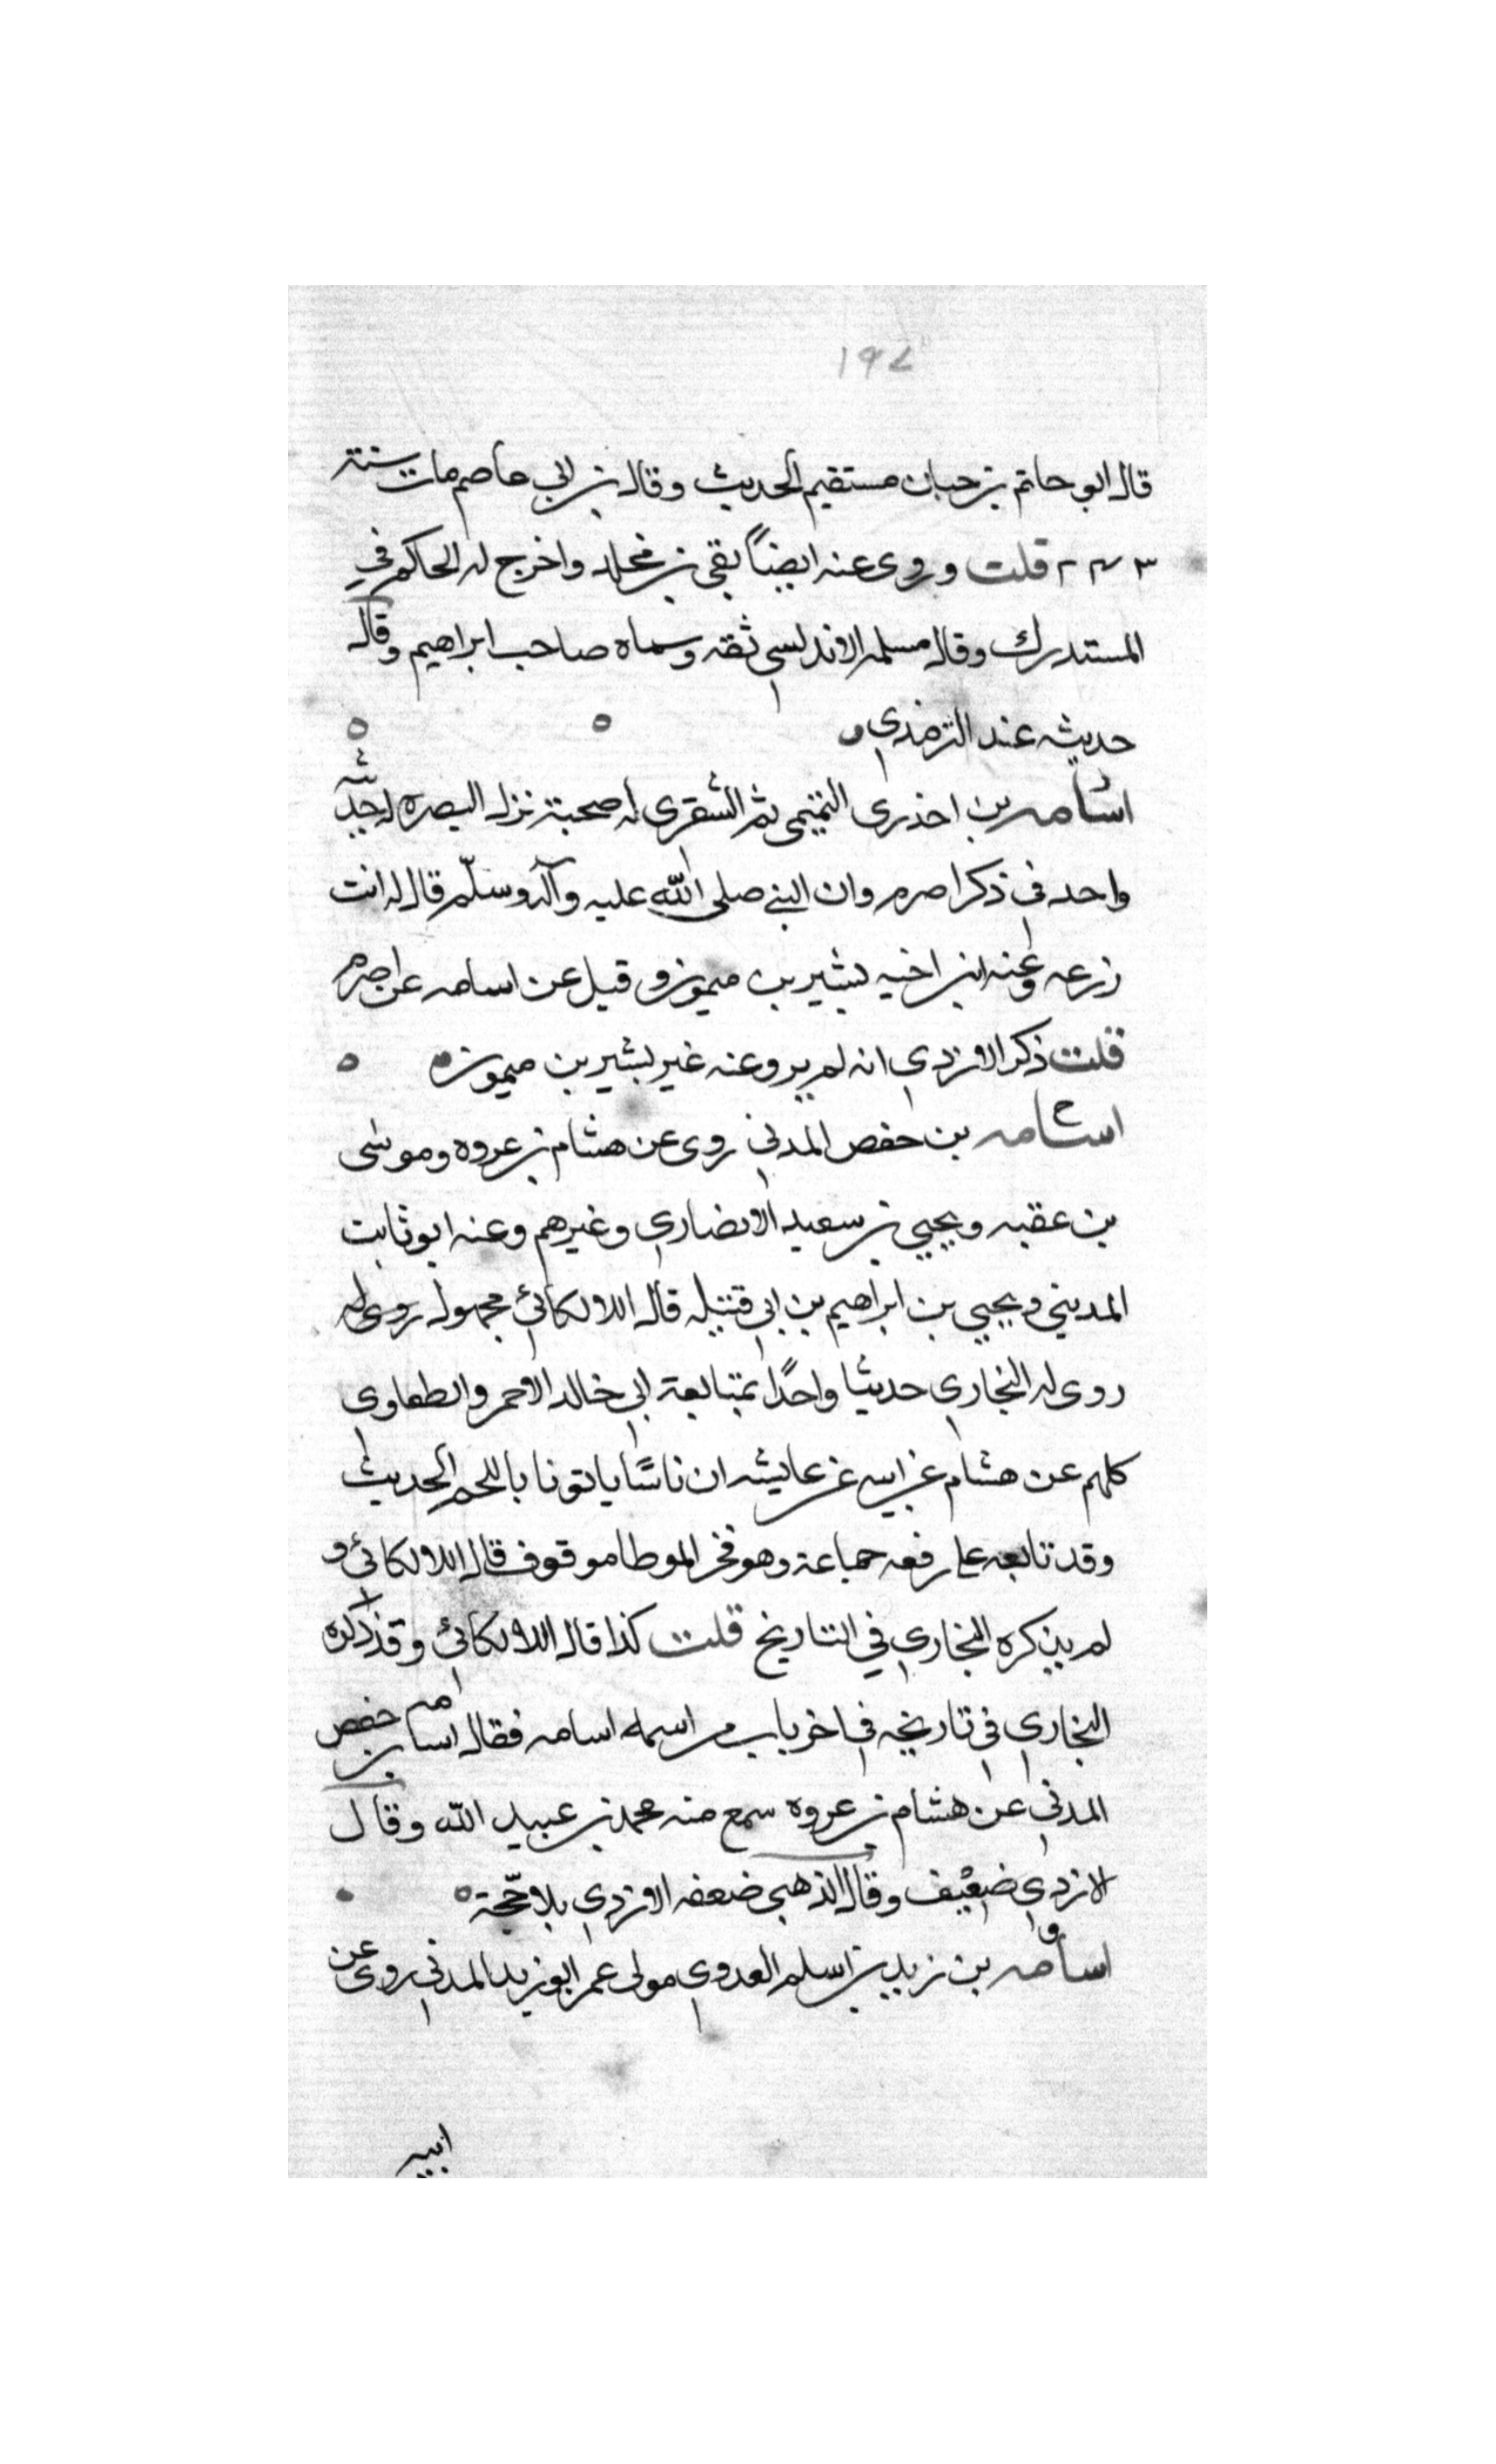 ١٩٧
قال ابو حاتم بن حبان مستقيم الحديث وقال بن ابي عاصم مات سنة
٢٣٣ قلت وروى عنه ايضاً بقي بن مخلد واخرج له الحاكم في
المستدرك وقال مسلمه الاندلسي ثقه وسماه صاحب ابراهيم وقال
حديثه عند الترمذي
اسامه بن اخدرى التميمى ثم الشقرى له صحبة نزل البصره له حديث
واحد فى ذكر اصرم وان النبي صلى الله عليه وآله وسلّم قال له انت
زرعه وعنه ابن اخيه بشير بن ميمون وقيل عن اسامه عن اصرم
قلت ذكر الازدي انه لم يرو عنه غير بشير بن ميمون ه
اسامه بن حفص المدني روى عن هشام بن عروه وموسى
بن عقبه ويحيي بن سعيد الانصاري وغيرهم وعنه ابو ثابت
المديني ويحيي بن ابراهيم بن ابي قتيله قال اللالكائي مجهول روى له
روى له البخاري حديثا واحدًا بمتابعة ابي خالد الاحمر والطفاوى
كلهم عن هشام عن ابيه عن عايشه ان ناسًا ياتونا باللحم الحديث
وقد تابعه على رفعه جماعة وهو في الموطا موقوف قال اللالكائي و
لم يذكره البخاري في التاريخ قلت كذا قال اللالكائي وقد ذكره
البخاري في تاريخه في اخر باب من اسمه اسامه فقال اسامه بن حفص
المدني عن هشام بن عروه سمع منه محمد بن عبيد الله وقال
الازدي ضعيف وقال الذهبى ضعفه الازدي بلا حجّة ه
اسامه بن زيد بن اسلم العدوي مولى عمر ابو زيد المدني روى عن
ابيه